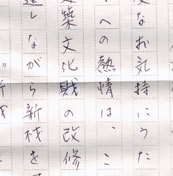 なお気持にうた
への熱情は、こ
築文化財の改修
しながら新材を